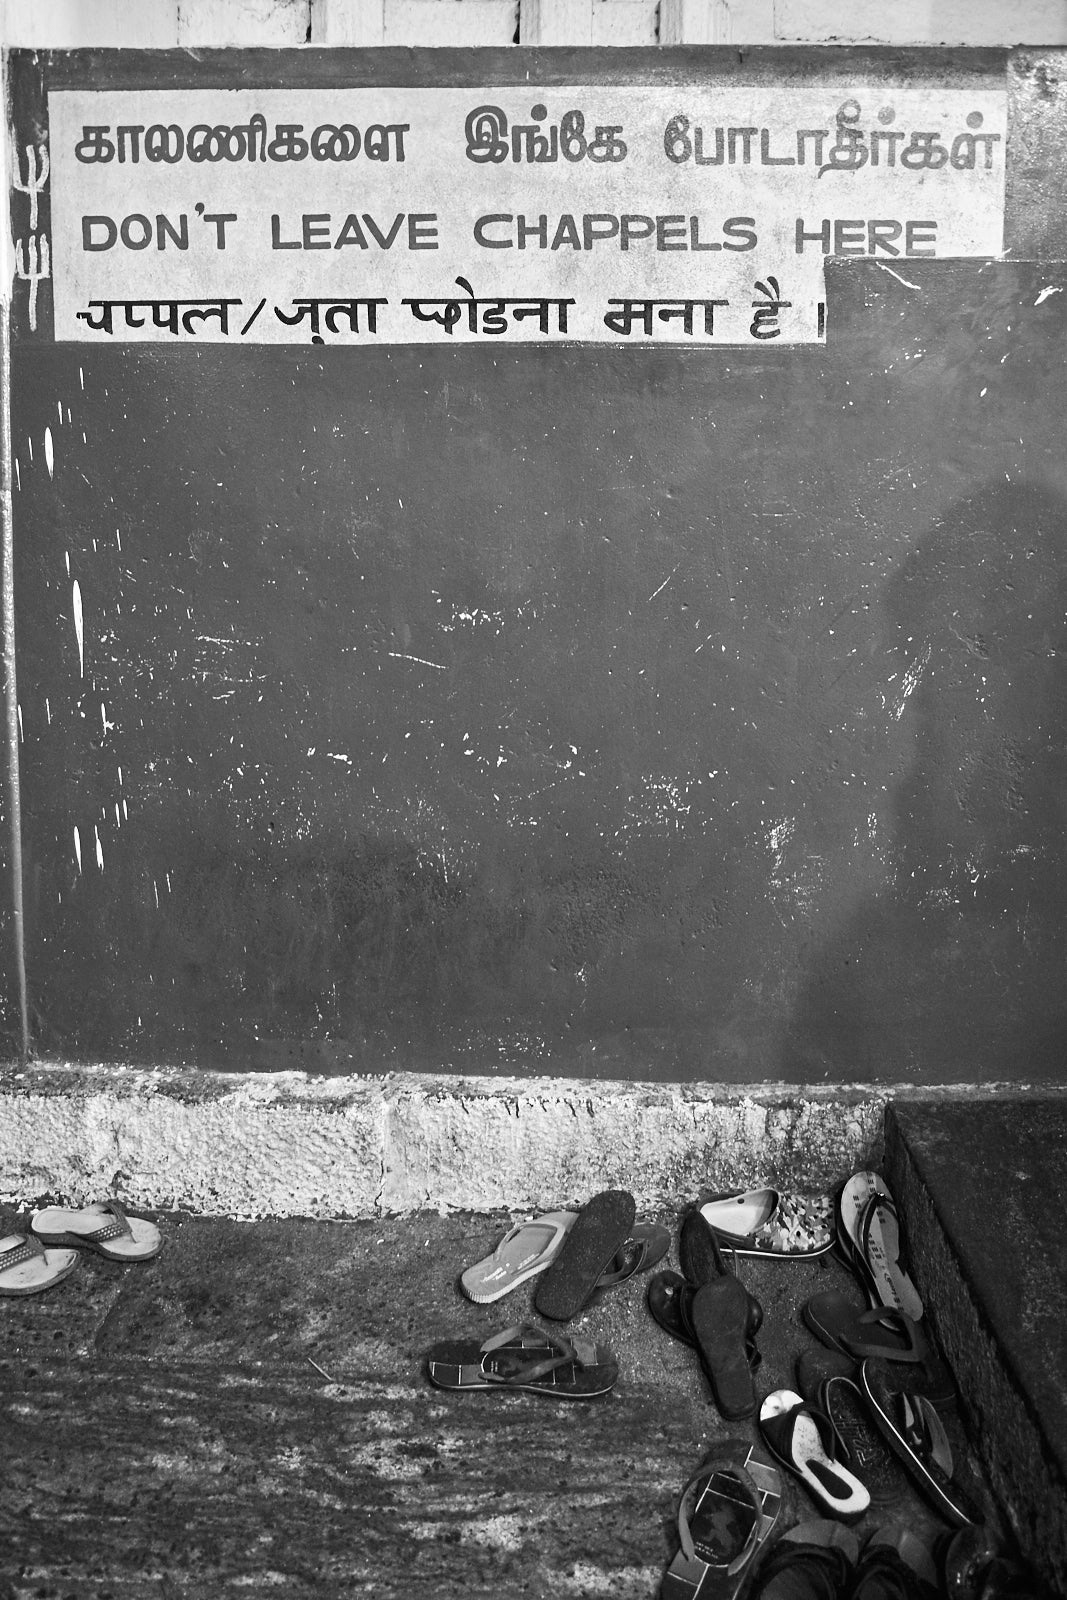 காலணிகளை இங்கே போடாதீர்கள்
DON'T LEAVE CHAPPELS HERE
चप्पल/जूता छोडना मना है।